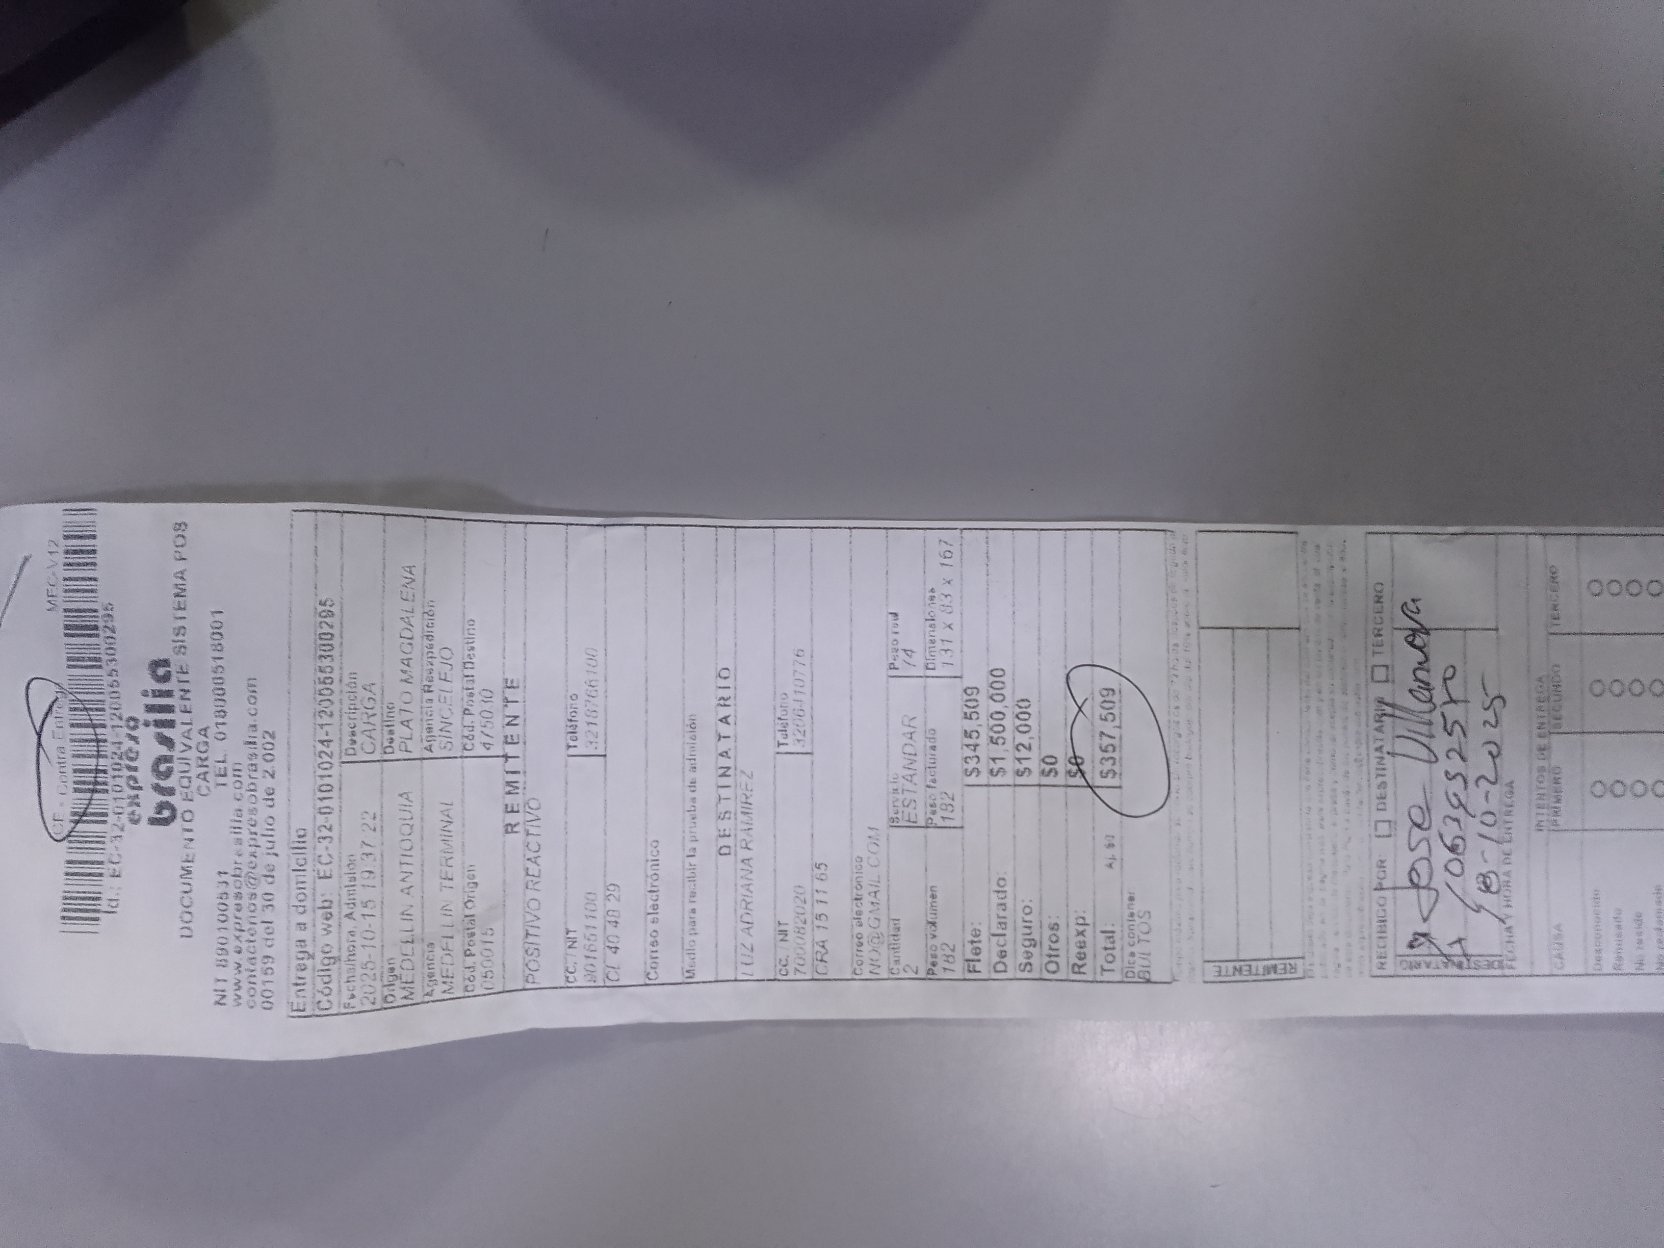 CE - Contra Entrega MFC-V12
Id.: EC-32-0101024-12055300295
expreso
brasilia
DOCUMENTO EQUIVALENTE SISTEMA POS
CARGA
NIT 890100531 TEL. 018000518001
www.expresobrasilia.com
contactenos@expresobrasilia.com
00159 del 30 de julio de 2.002
Entrega a domicilio
Código web: EC-32-0101024-12055300295
Fecha/hora Admisión Descripción
2025-10-15 19:37:22 CARGA
Origen Destino
MEDELLIN ANTIOQUIA PLATO MAGDALENA
Agencia Agencia Reexpedición
MEDELLIN TERMINAL SINCELEJO
Cód. Postal Origen Cód. Postal Destino
050015 475030
REMITENTE
POSITIVO REACTIVO
CC. / NIT Teléfono
901661100 3218766100
CL 40 48 29
Correo electrónico
Medio para recibir la prueba de admisión
DESTINATARIO
LUZ ADRIANA RAMIREZ
CC. / NIT Teléfono
700082020 3206110776
CRA 15 11 65
Correo electrónico
NO@GMAIL.COM
Cantidad Servicio Peso real
2 ESTANDAR 74
Peso volumen Peso facturado Dimensiones
182 182 131 x 83 x 167
Flete: $345,509
Declarado: $1,500,000
Seguro: $12,000
Otros: $0
Reexp: $0
Total: $357,509
Dice contener
BULTOS
REMITENTE
RECIBIDO POR: DESTINATARIO TERCERO
Jose Villanueva
18-10-2025
FECHA Y HORA DE ENTREGA
INTENTOS DE ENTREGA
CAUSA PRIMERO SEGUNDO TERCERO
Desconocido
Rehusado
No reside